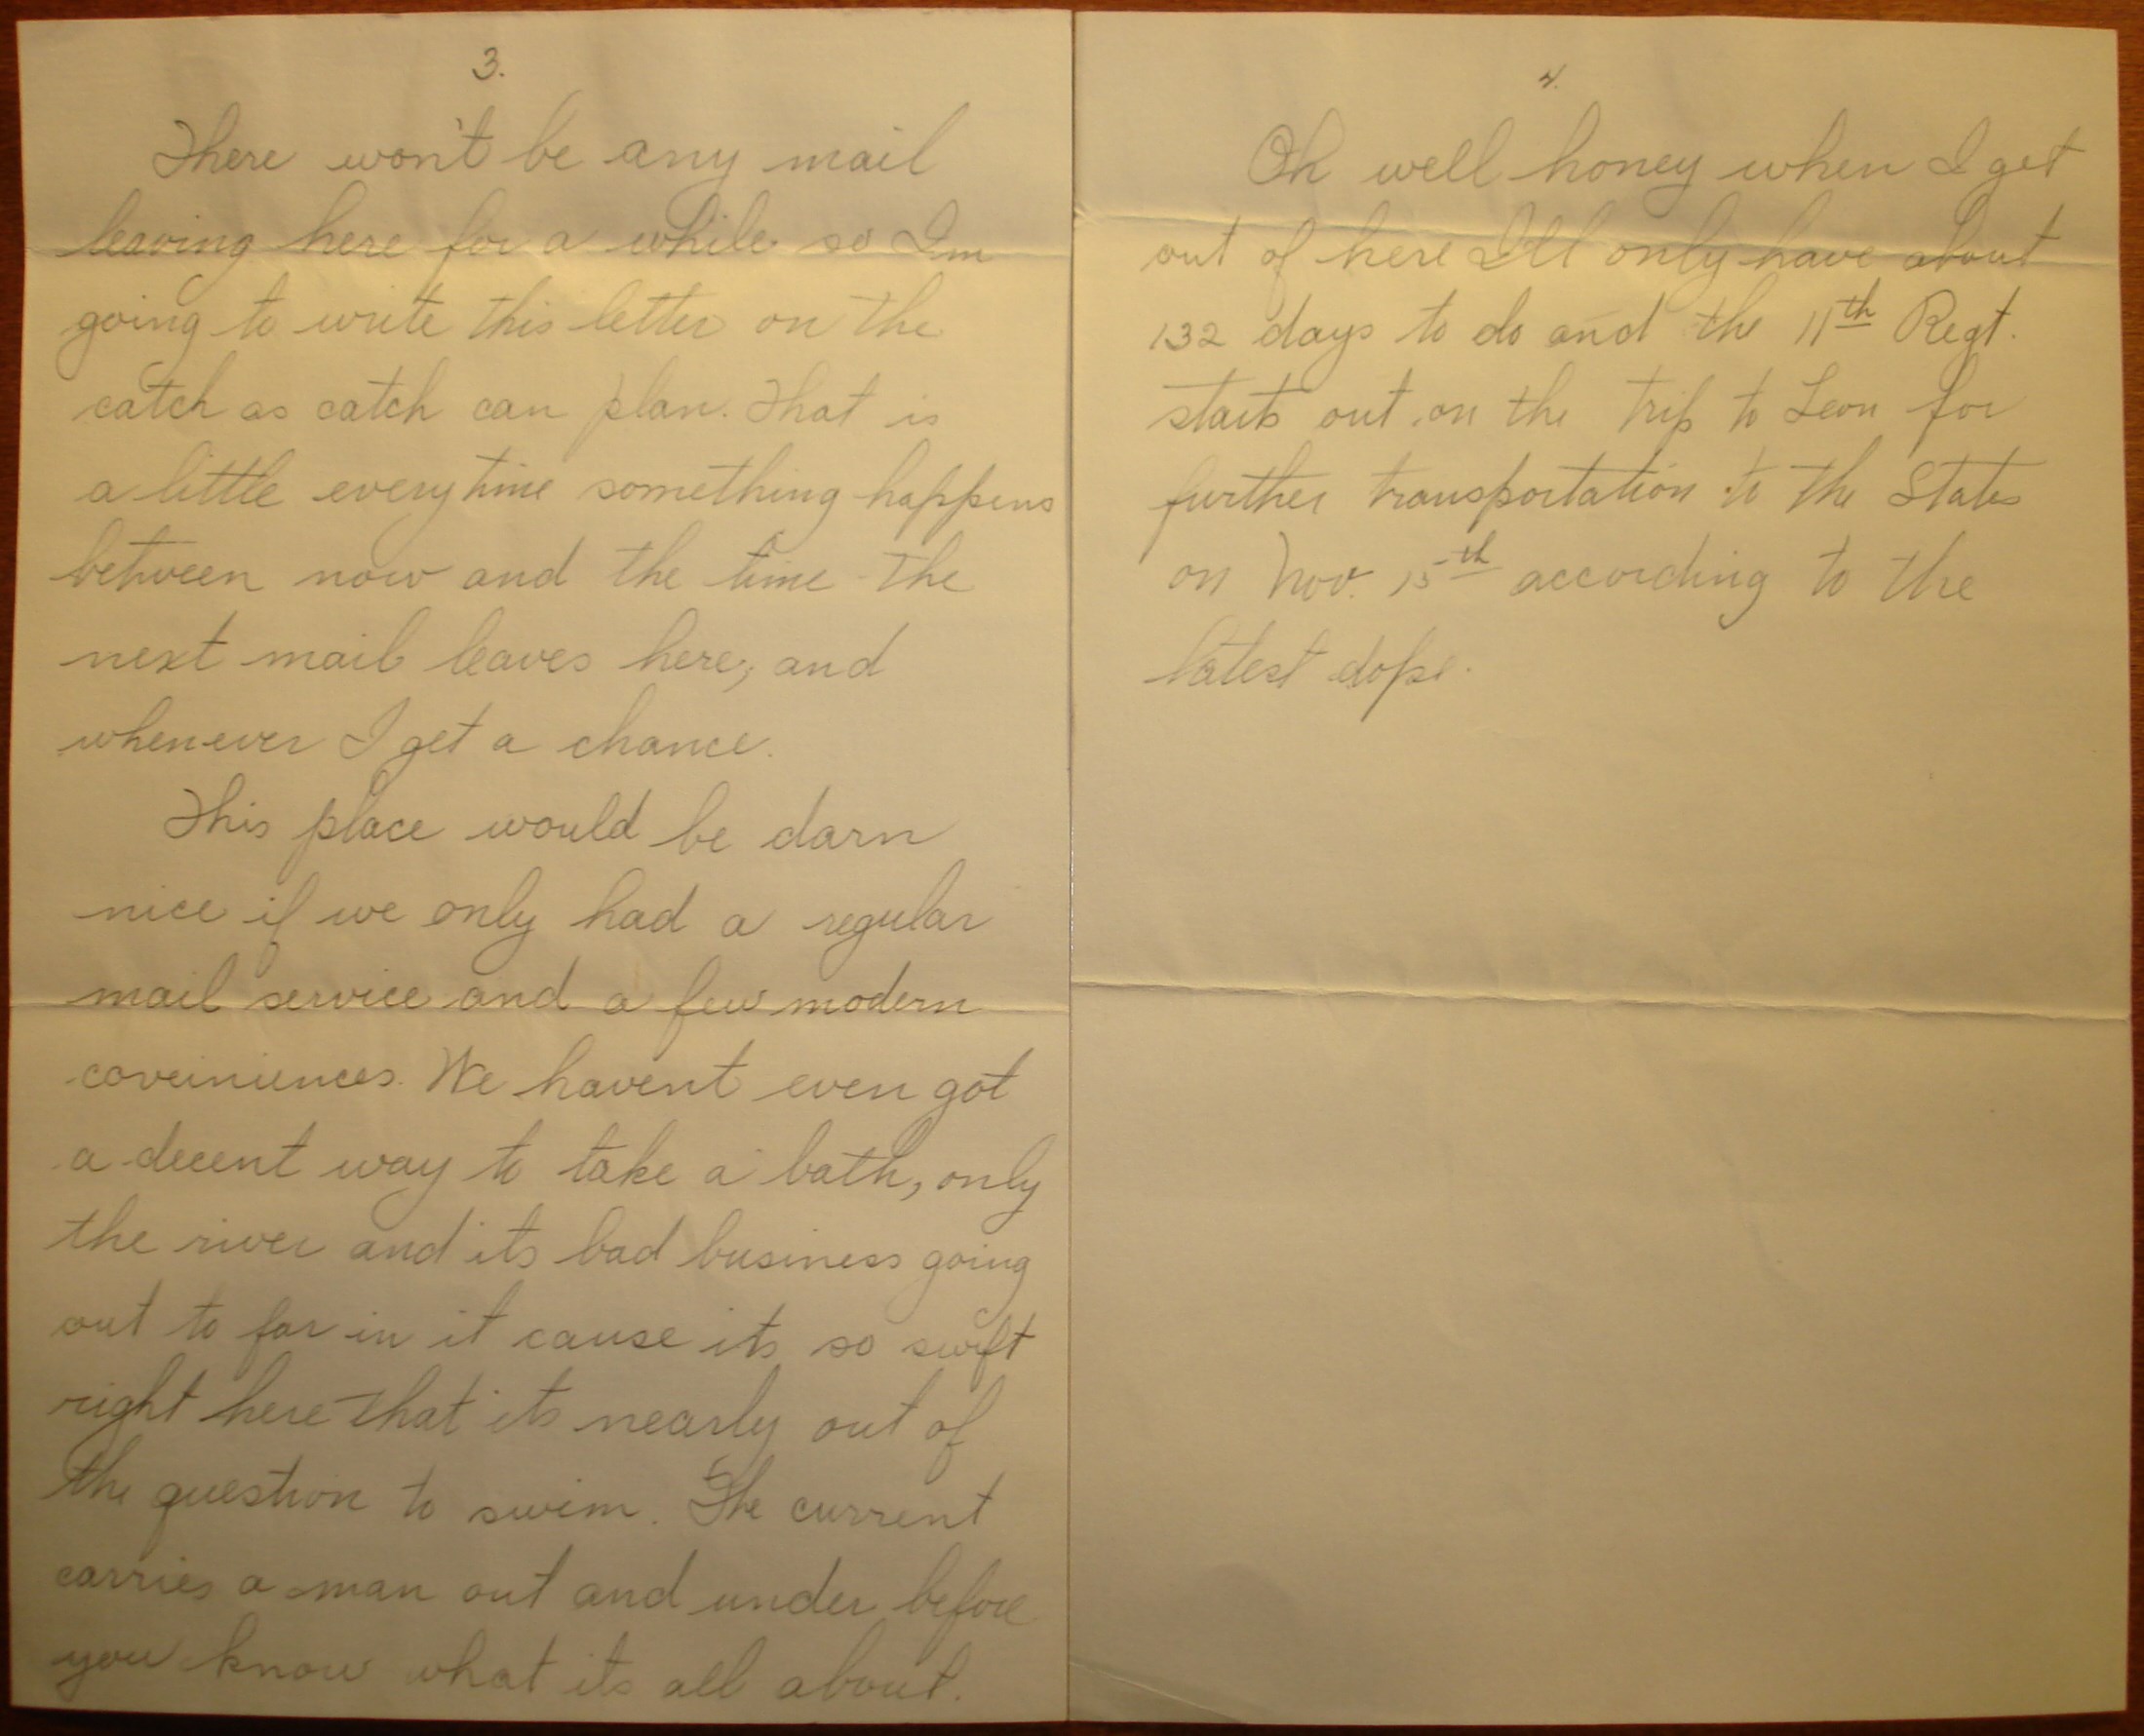 3.
There won't be any mail
leaving here for a while so Im
going to write this letter on the
catch as catch can plan. That is
a little everytime something happens
between now and the time the
next mail leaves here, and
whenever I get a chance.
This place would be darn
nice if we only had a regular
mail service and a few modern
coveiniences. We havent even got
a decent way to take a bath, only
the river and its bad business going
out to far in it cause its so swift
right here that its nearly out of
the question to swim. The current
carries a man out and under before
you know what its all about.
4.
Oh well honey when I get
out of here I'll only have about
132 days to do and the 11th Regt.
starts out on the trip to Leon for
further transportation to the States
on Nov. 15th according to the
latest dope.